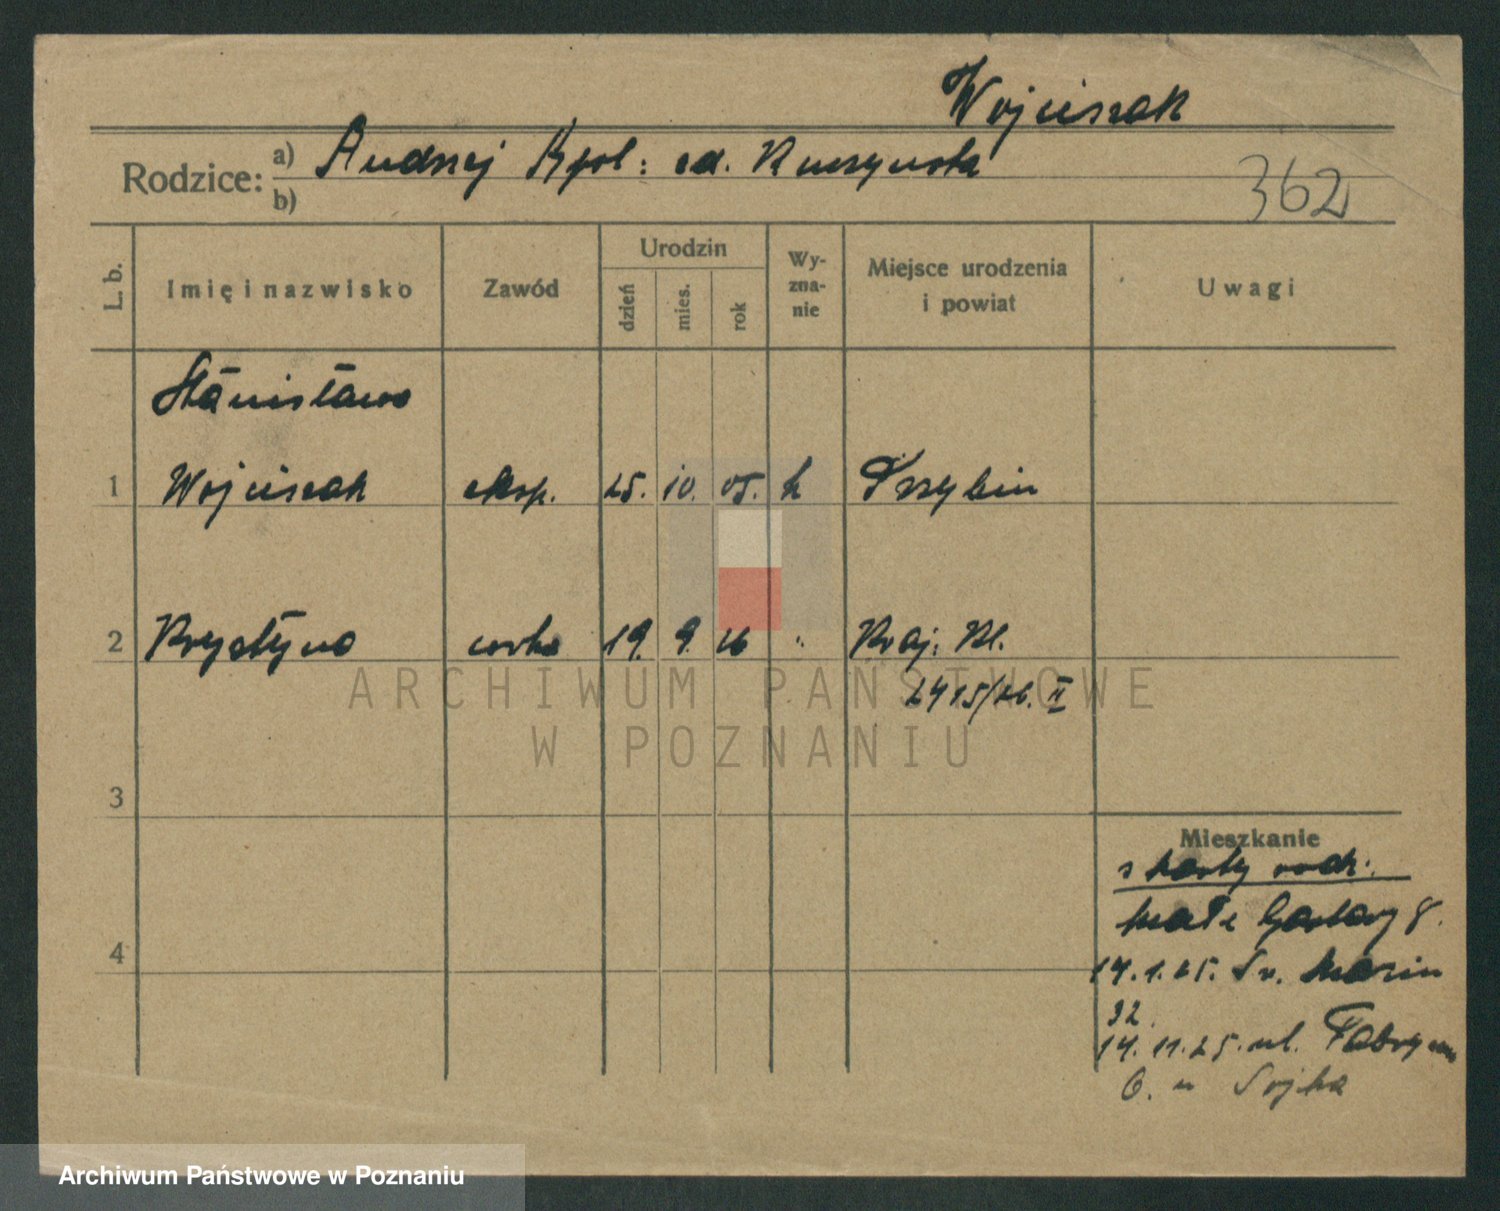 Wojciszak
Rodzice: a) Andrzej Apol: zd. Kuczynska
b)
362
L. b.
Imię i nazwisko
Zawód
Urodzin
dzień
mies.
rok
Wy-
zna-
nie
Miejsce urodzenia
i powiat
Uwagi
Stanisława
1 Wojciszak eksp. 25. 10. 05. k Trzybin
2 Krystyna corka 19. 9. 26 " Kraj. Kl.
2415/26. II
3
4
Mieszkanie
z karty rodz.
Małe Garbary 8.
14.1.25. Św. Marcin
32.
14.11.25. ul. Fabryczna
6. u Sojka
ARCHIWUM PAŃSTWOWE
W POZNANIU
Archiwum Państwowe w Poznaniu